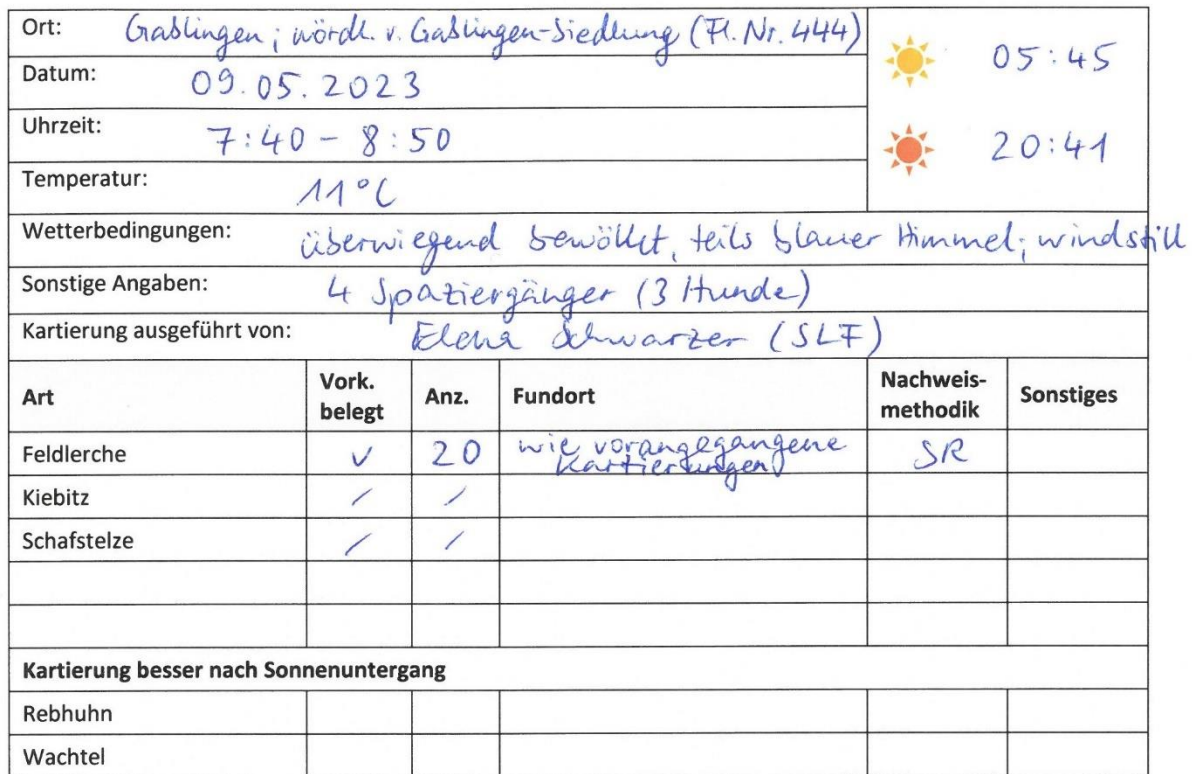 Ort: Gablingen; nördl. v. Gablingen-Siedlung (Fl. Nr. 444)
05:45
Datum: 09.05.2023
Uhrzeit: 7:40 - 8:50
20:41
Temperatur: 11°C
Wetterbedingungen: überwiegend bewölkt, teils blauer Himmel; windstill
Sonstige Angaben: 4 Spaziergänger (3 Hunde)
Kartierung ausgeführt von: Elena Schwarzer (SLF)
Art Vork. belegt Anz. Fundort Nachweis-methodik Sonstiges
Feldlerche ✓ 20 wie vorangegangene Kartierungen SR
Kiebitz / /
Schafstelze / /
Kartierung besser nach Sonnenuntergang
Rebhuhn
Wachtel